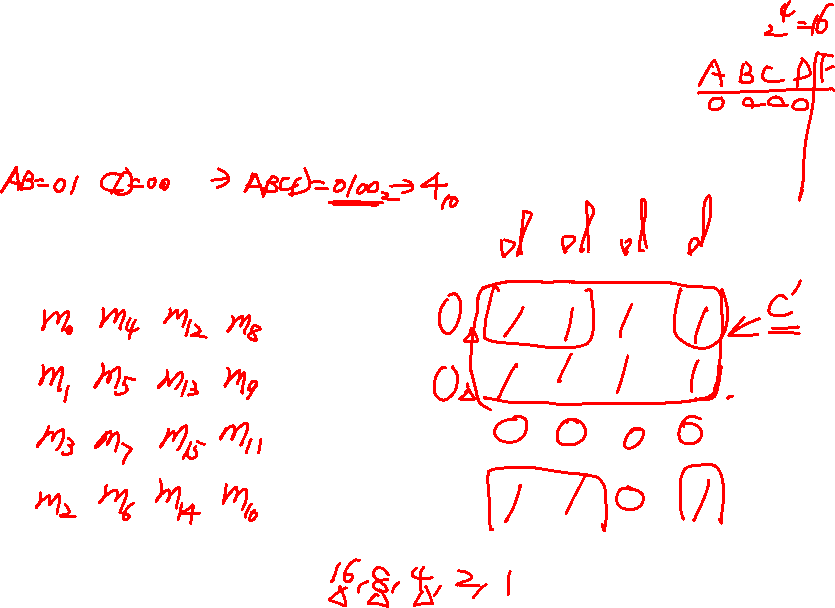 2^4=16
A B C D F
0 0 0 0
AB=01 CD=00 → ABCD=0100₂ → 4₁₀
m₀ m₄ m₁₂ m₈
m₁ m₅ m₁₃ m₉
m₃ m₇ m₁₅ m₁₁
m₂ m₆ m₁₄ m₁₀
0 1 1 1 1 ← C'
0 1 1 1 1
0 0 0 0
1 1 0 1
16, 8, 4, 2, 1